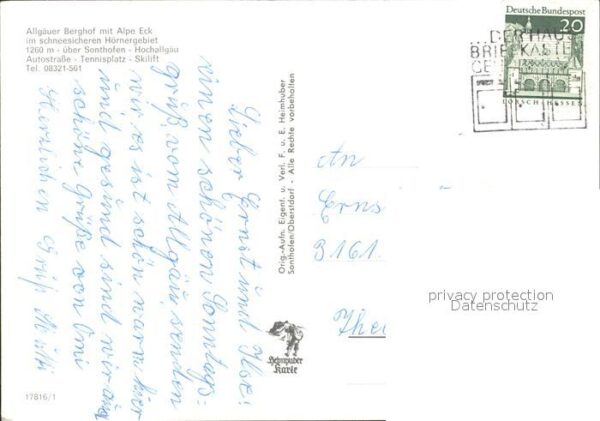 Allgäuer Berghof mit Alpe Eck
im schneesicheren Hörnergebiet
1260 m - über Sonthofen - Hochallgäu
Autostraße - Tennisplatz - Skilift
Tel. 08321-561
Lieber Ernst und Ilse!
einen schönen Sonntags-
grüß vom Allgäu senden
wir es ist schön warm hier
und gesund sind wir auch
schöne grüße von Omi
Herzlichen Gruß
17816/1
Orig.-Aufn. Eigent. u. Verl. F. u. E. Heimhuber
Sonthofen/Oberstdorf - Alle Rechte vorbehalten
Heimhuber
Karte
Deutsche Bundespost
20
LORSCH/HESSEN
...DER HAUS
BRIEFKASTEN
An
Erns
3161
privacy protection
Datenschutz